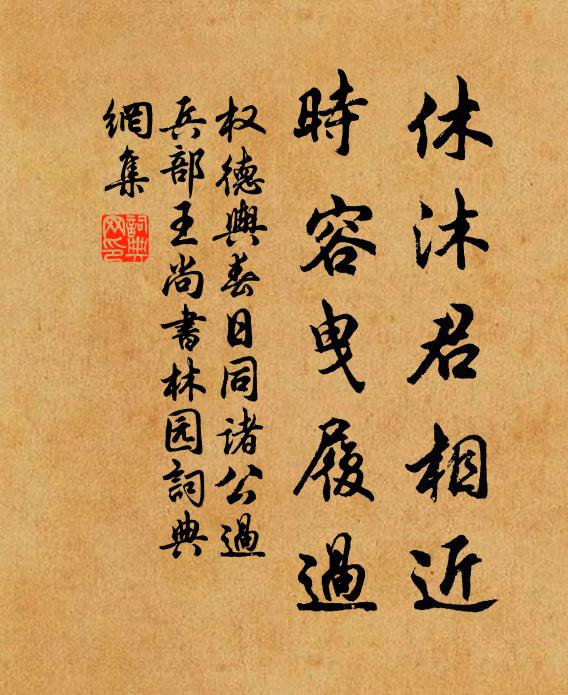 休沐君相近
時容曳履過
权德輿春日同诸公過
兵部王尚書林园詞典
網集
詞典
网印